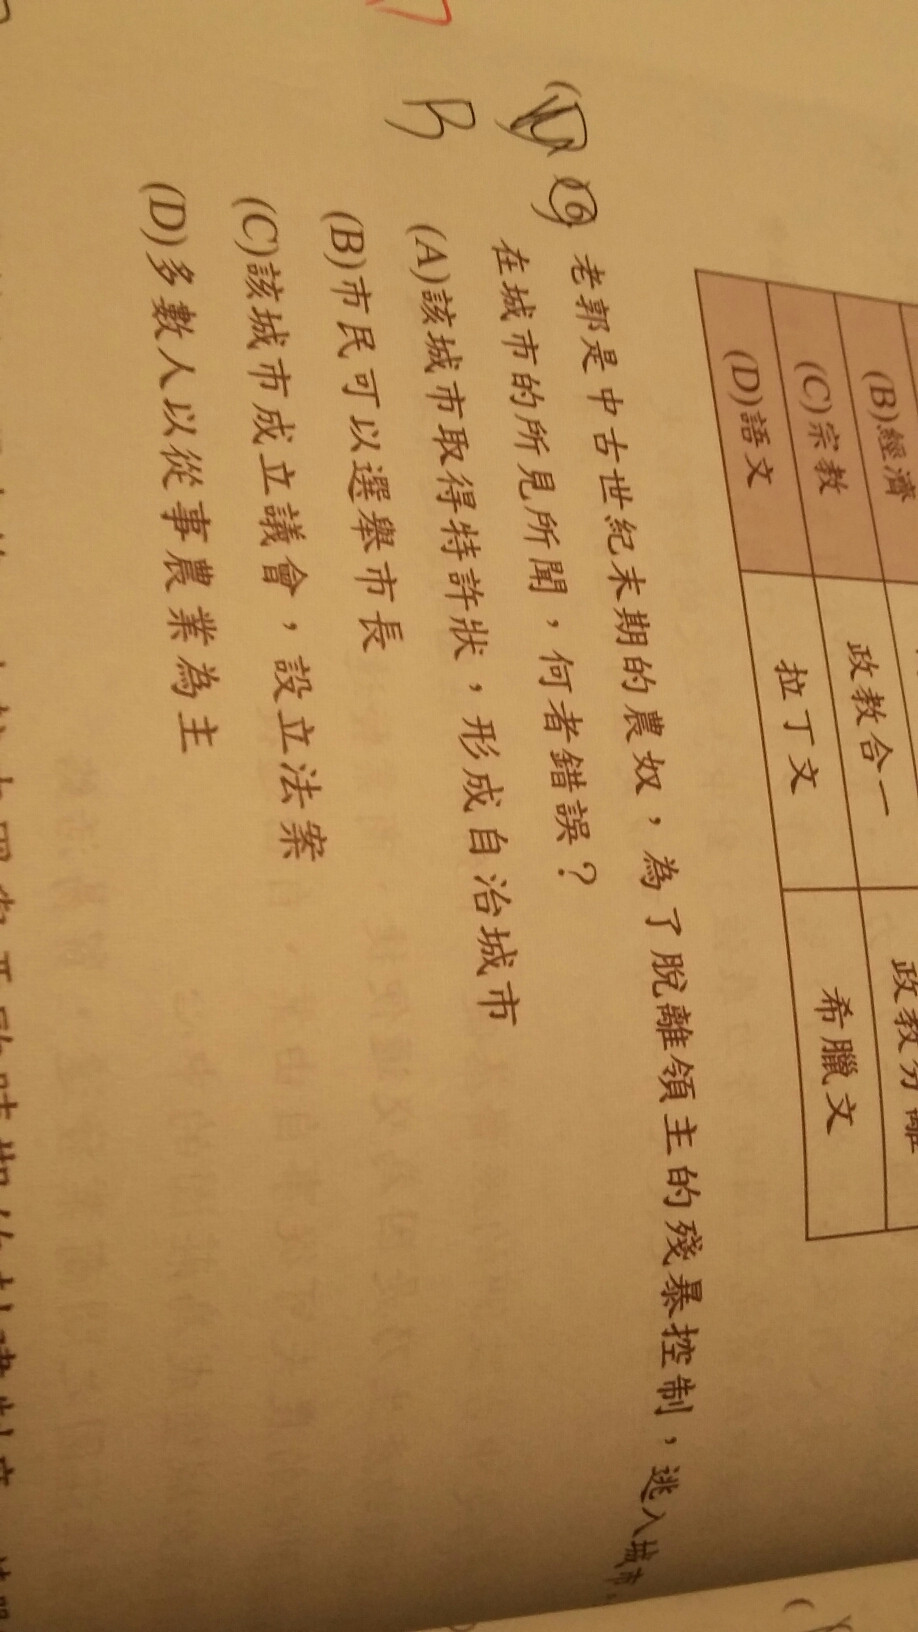 (B)經濟
(C)宗教 政教合一 政教分離
(D)語文 拉丁文 希臘文
16 老郭是中古世紀末期的農奴，為了脫離領主的殘暴控制，逃入城市，
在城市的所見所聞，何者錯誤？
B
(A)該城市取得特許狀，形成自治城市
(B)市民可以選舉市長
(C)該城市成立議會，設立法案
(D)多數人以從事農業為主